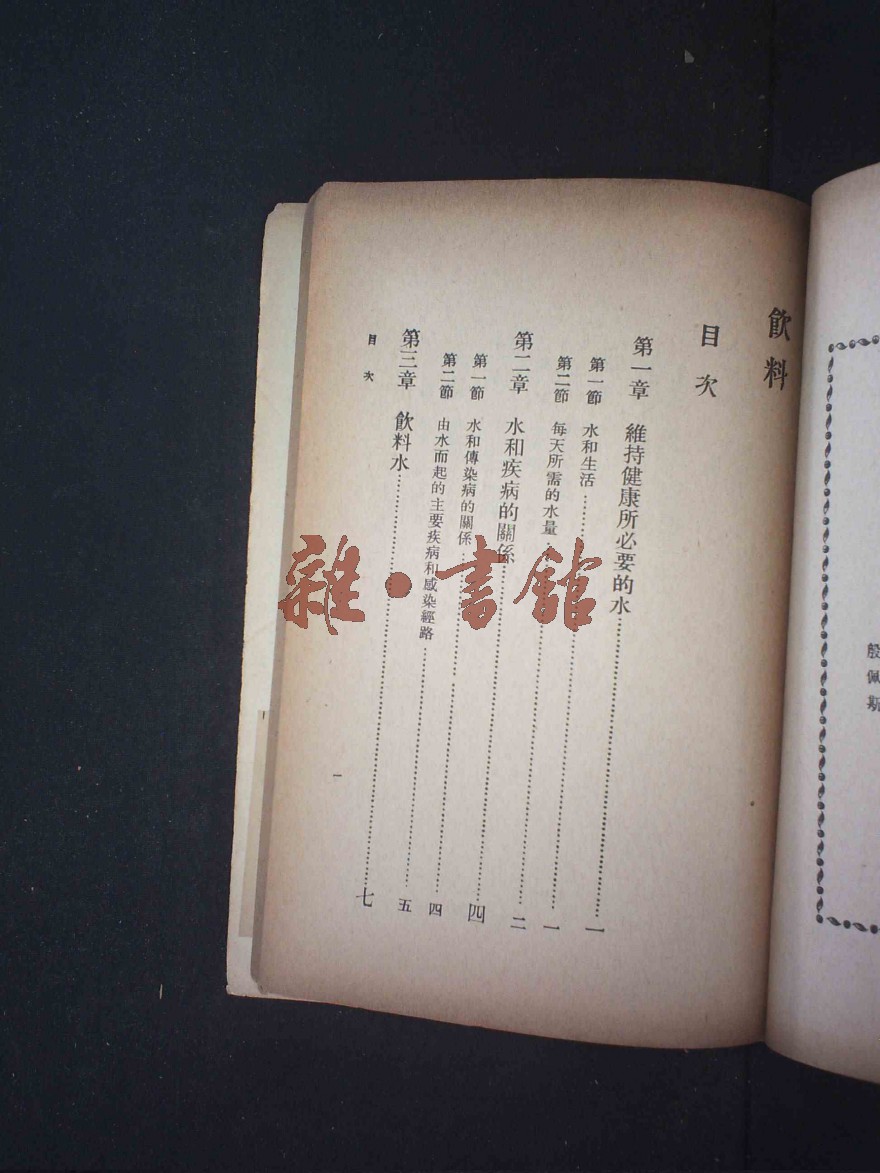 飲料
目次
第一章 維持健康所必要的水……一
第一節 水和生活……一
第二節 每天所需的水量……二
第二章 水和疾病的關係……四
第一節 水和傳染病的關係……四
第二節 由水而起的主要疾病和感染經路……五
第三章 飲料水……七
目次
一
殷佩斯
雜·書館